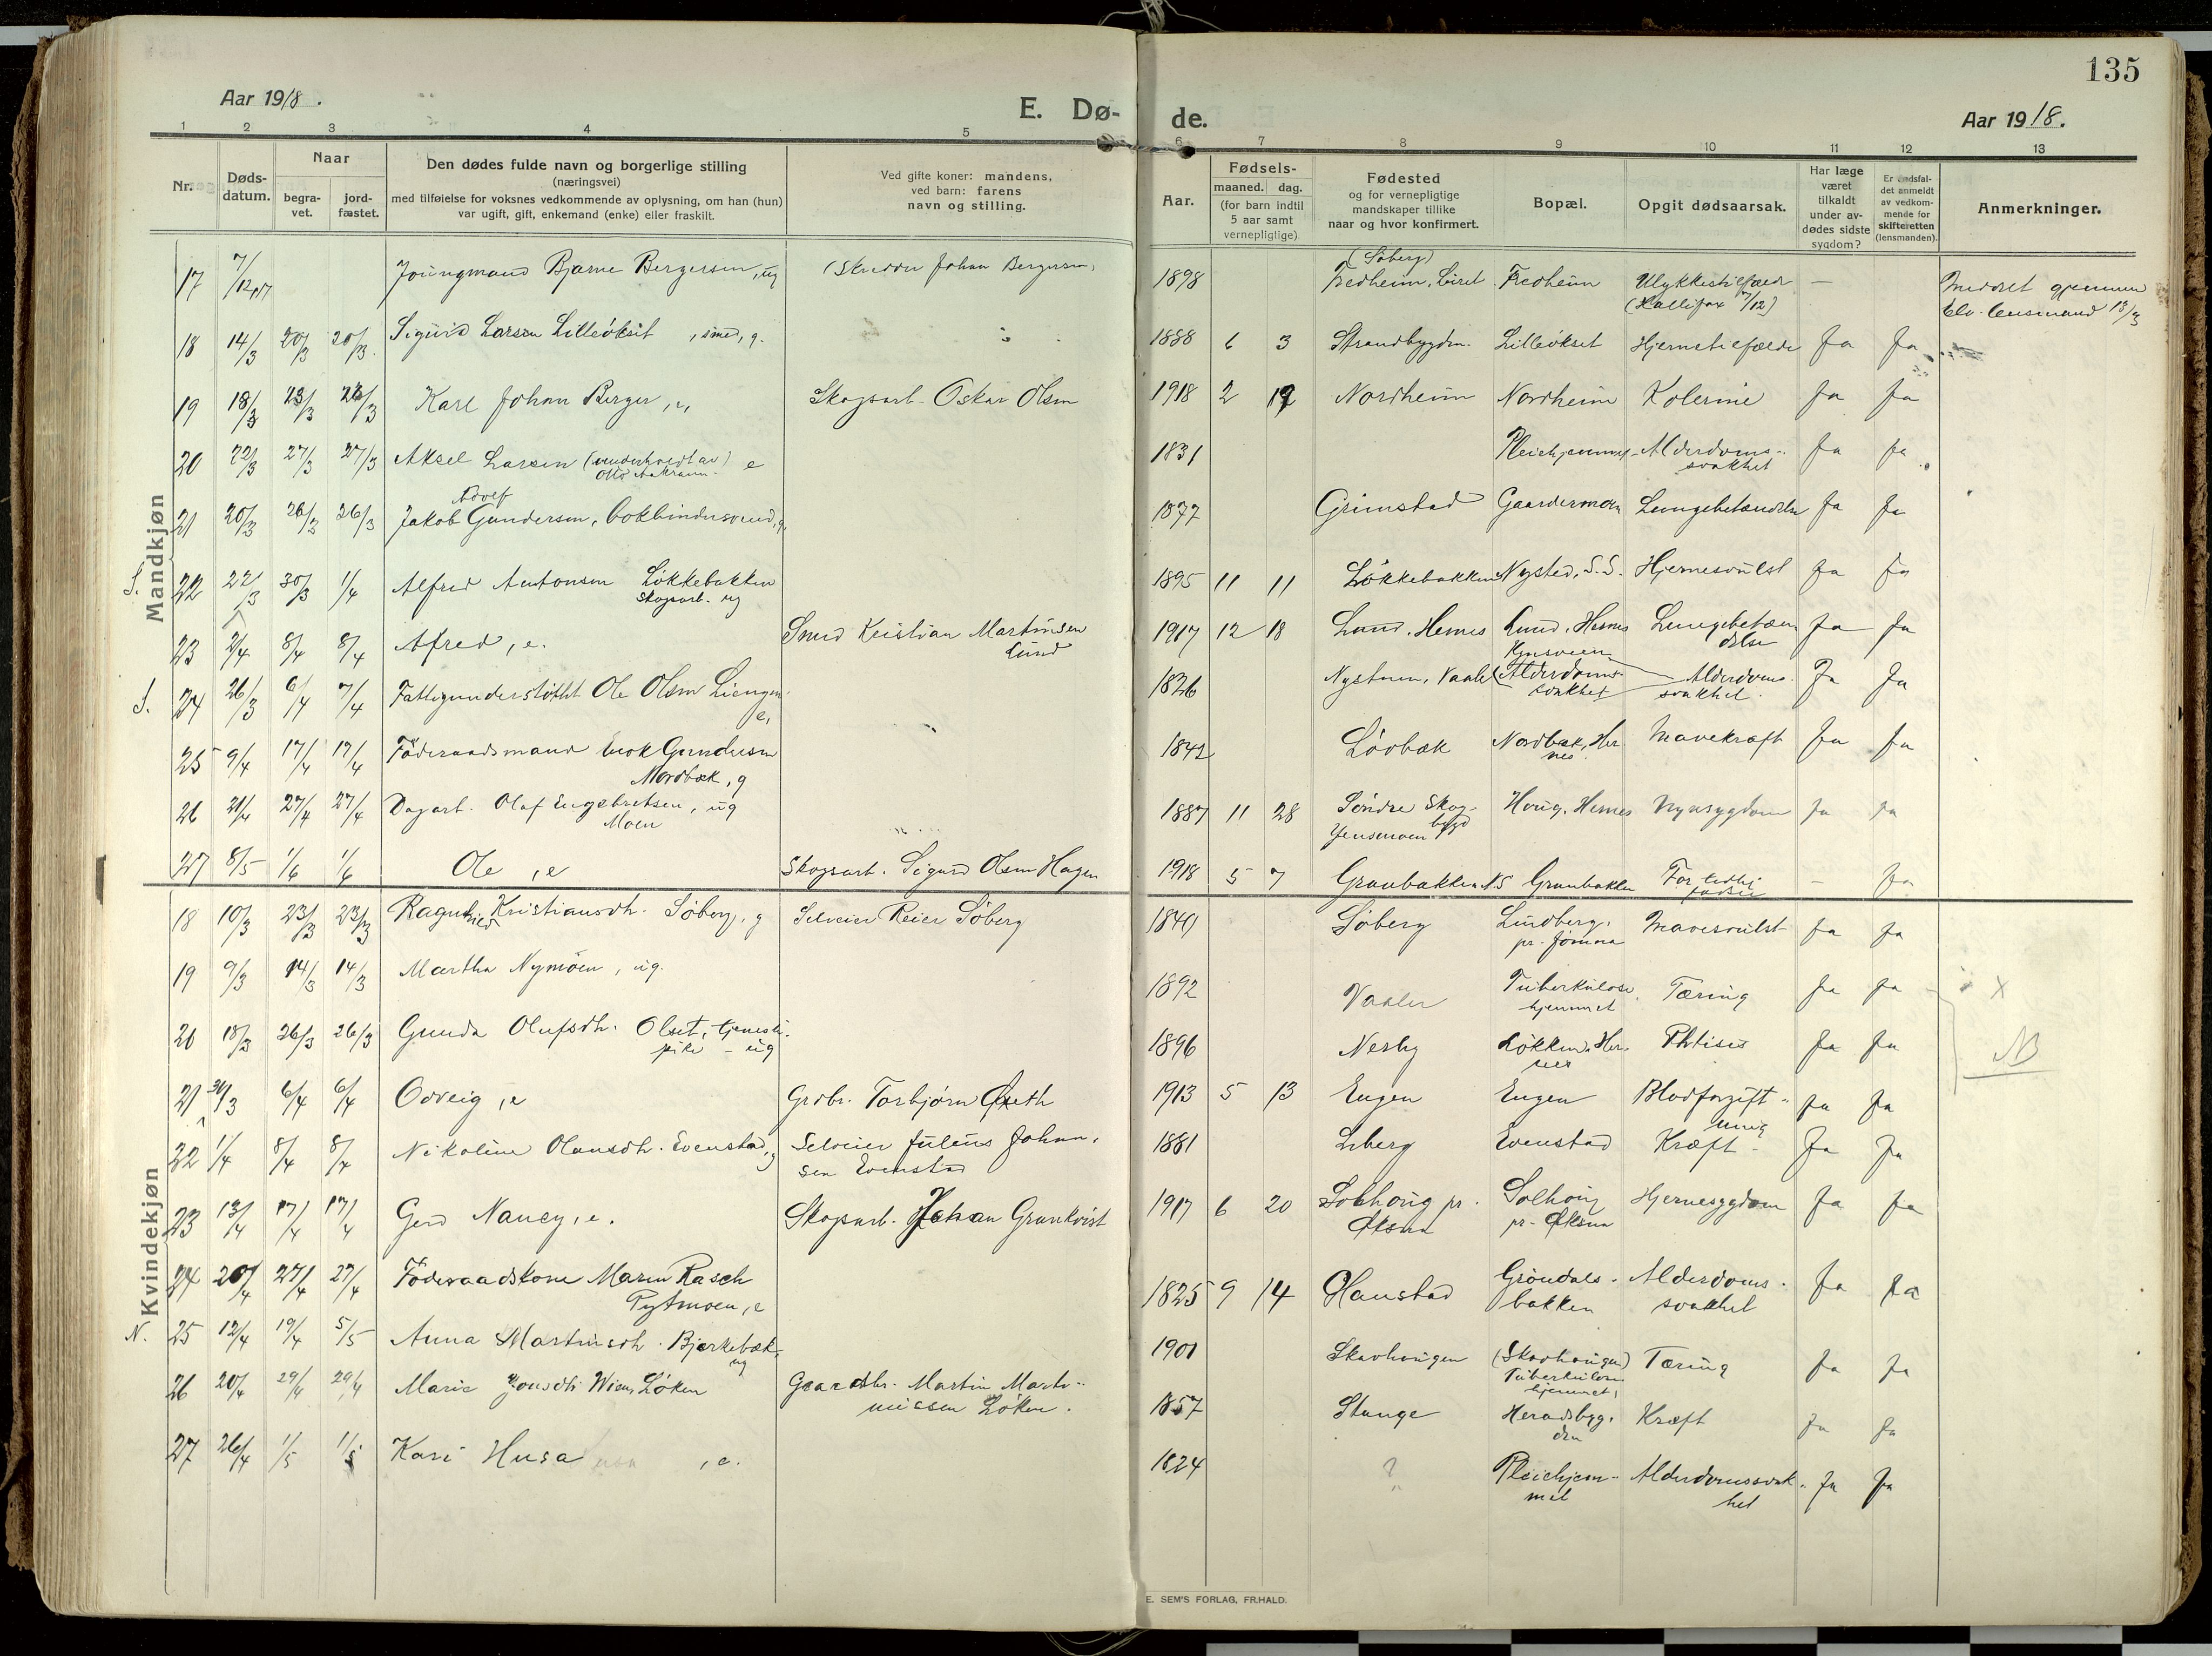 135
Aar 1918.
E. Dø-
de.
Aar 1918.
1 2 3 4 5 6 7 8 9 10 11 12 13
Nr.
Døds-
datum.
Naar
begra-
vet.
jord-
fæstet.
Den dødes fulde navn og borgerlige stilling
(næringsvei)
med tilføielse for voksnes vedkommende av oplysning, om han (hun)
var ugift, gift, enkemand (enke) eller fraskilt.
Ved gifte koner: mandens,
ved barn: farens
navn og stilling.
Aar.
Fødsels-
maaned. dag.
(for barn indtil
5 aar samt
vernepligtige)
Fødested
og for vernepligtige
mandskaper tillike
naar og hvor konfirmert.
Bopæl.
Opgit dødsaarsak.
Har læge
været
tilkaldt
under av-
dødes sidste
sygdom?
Er dødsfal-
det anmeldt
av vedkom-
mende for
skifteretten
(lensmanden).
Anmerkninger.
Mandkjøn
17 7/12 17 Joungmand Bjarne Bergersen, ug (Skredder Johan Bergersen, 1898 (Søberg) Fredheim Fredheim Ulykkestilfælde (Hallifax 7/12) — gjennem Elv. lensmand 18/3
18 14/3 20/3 20/3 Sigurd Larsen Lilleökset, smed, g. 1888 6 3 Strandbygden Lilleökset Hjernetilfælde Ja Ja
19 18/3 23/3 23/3 Karl Johan Berger, e, Skogsarb. Oskar Olsen 1918 2 12 Nordheim Nordheim Kolerine Ja Ja
20 22/3 27/3 27/3 Aksel Larsen e 1831 Pleiehjemmet Alderdoms-
svakhet Ja Ja
21 20/3 26/3 26/3 Jakob Adolf Gundersen, bokbindersvend, g. 1877 Grimstad Gaardermoen Lungebetændelse Ja Ja
S. 22 22/3 30/3 1/4 Alfred Antonsen Lökkebakken
Skogsarb. ug 1895 11 11 Lökkebakken Nysted, S.S. Hjernesvulst Ja Ja
23 2/4 8/4 8/4 Alfred, e. Smed Kristian Martinsen
Lund 1917 12 18 Lund, Hernes Lund, Hernes Lungebetæn
delse Ja Ja
S. 24 26/3 6/4 7/4 Fattigunderstöttet Ole Olsen Liengen
e, 1826 Nystuen, Vaaler Alderdoms-
svakhet Alderdoms-
svakhet. Ja Ja
25 9/4 17/4 17/4 Föderaadsmand Enok Gundersen
Nordbæk, g 1842 Lövbæk Nordbæk, Her-
nes. Mavekræft Ja Ja
26 21/4 27/4 27/4 Dagarb. Olaf Engebretsen, ug
Moen 1887 11 28 Söndre Skog-
bygd
Jensmoen Houg, Hernes Nyresygdom Ja Ja
27 8/5 1/6 1/6 Ole, e Skogsarb. Sigurd Olsen Hagen 1918 5 7 Granbakken N.S Granbakken For tidlig
fødsel — Ja
Kvindekjøn
18 10/3 23/3 23/3 Ragnhild Kristiansdh. Söberg, g Selveier Reier Söberg 1849 Söberg Lindberg,
pr. Jömna Mavesvulst Ja Ja
19 9/3 14/3 14/3 Martha Nymoen, ug. 1892 Vaaler Tuberkulose
hjemmet Tæring Ja Ja x
20 18/3 26/3 26/3 Gunda Olufsdh. Olset, tjeneste-
pike - ug 1896 Nerby Lökken, Her-
nes Phtisis Ja Ja NB
21 30/3 6/4 6/4 Odveig, e Grdbr. Torbjørn Øseth 1913 5 13 Engen Engen Blodforgift-
ning Ja Ja
22 1/4 8/4 8/4 Nikoline Olausdh. Evenstad, g Selveier Julius Johan-
sen Evenstad 1881 Evenstad Kræft. Ja Ja
23 13/4 17/4 17/4 Gerd Nancy, e. Skogsarb. Johan Grankvist 1917 6 20 Solhoug pr.
Øksna Solhoug
pr. Øksna Hjernesygdom Ja Ja
24 20/4 27/4 27/4 Föderaadskone Maren Rasch
Pytmoen, e 1825 9 14 Olaustad Gröndals-
bakken Alderdoms-
svakhet Ja Ja
N. 25 12/4 19/4 5/5 Anna Martinsdh. Bjerkebæk,
ug 1901 Skavhaugen (Skavhaugen)
Tuberkulose
hjemmet, Tæring Ja Ja
26 20/4 29/4 29/4 Marie Jonsdh. Löken Gaardbr. Martin Marti-
niussen Löken. 1857 Stange Heradsbyg-
den Kræft Ja Ja
27 26/4 1/5 1/5 Kari Husa, e. 1824 ? Pleiehjem-
met Alderdomssvak-
het Ja Ja
E. SEM'S FORLAG, FR.HALD.